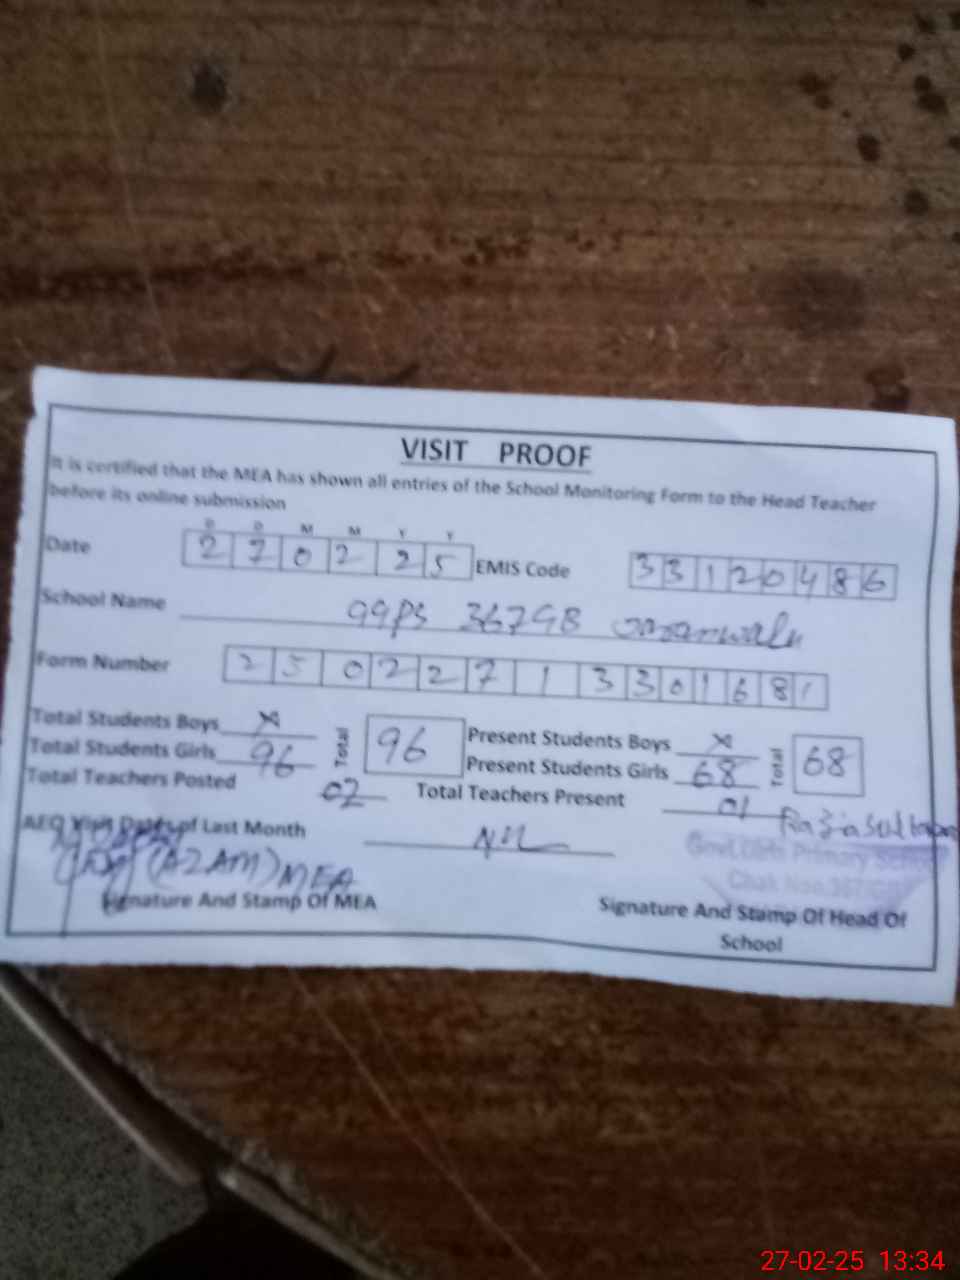 VISIT PROOF
It is certified that the MEA has shown all entries of the School Monitoring Form to the Head Teacher
before its online submission
D D M M Y Y
Date 2 7 0 2 2 5 EMIS Code 3 3 1 2 0 4 8 6
School Name GGPS 367GB
Form Number 2 5 0 2 2 7 1 3 3 0 1 6 8 1
Total Students Boys X Total 96 Present Students Boys X Total 68
Total Students Girls 96 Present Students Girls 68
Total Teachers Posted 02 Total Teachers Present 01
Razia Sultana
AEO Visit Dates of Last Month Nil
Govt. Girls Primary School
(AZAM) MEA
Chak Noo.367/GB
Signature And Stamp Of MEA
Signature And Stamp Of Head Of
School
27-02-25 13:34